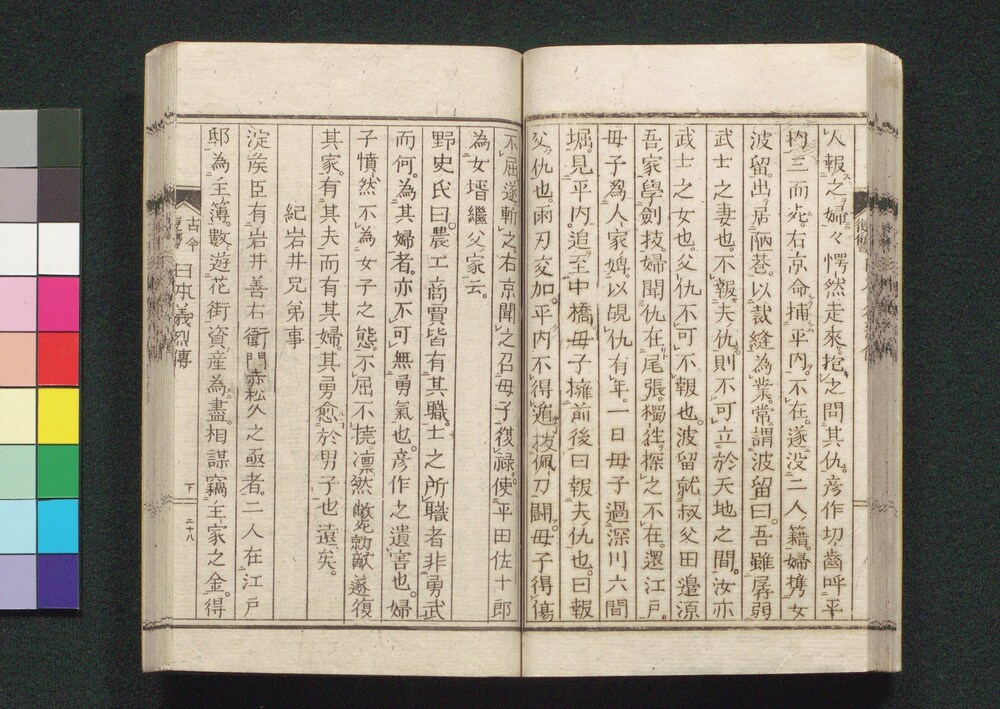 人報之婦々愕然走來抱之問其仇。彥作切齒呼平
内三而死。右京命捕平内。不在。遂没二人籍。婦携女
波留。出居陋巷。以裁縫為業。常謂波留曰。吾雖孱弱
武士之妻也。不報夫仇。則不可立於天地之間。汝亦
武士之女也。父仇不可不報也。波留就叔父田邉源
吾家學劍技婦聞仇在尾張。獨往探之不在。還江戸。
母子為人家婢以覘仇有年。一日母子過深川六間
堀。見平内。追至中橋。母子擁前後曰報夫仇也。曰報
父仇也。兩刃交加。平内不得遁拔佩刀鬪。母子得傷
不屈遂斬之。右京聞之召母子復禄。使平田佐十郎
為女壻繼父家云。
野史氏曰。農工商賈皆有其職。士之所職者非勇武
而何。為其婦者。亦不可無勇氣也。彥作之遺害也。婦
子憤然不為女子之態。不屈不撓凛然斃勍敵遂復
其家。有其夫而有其婦。其勇愈於男子也遠矣。
紀岩井兄弟事
淀侯臣有岩井善右衛門赤松久之亟者。二人在江戸
邸為主簿。數遊花街資産為盡。相謀竊主家之金。得
古今日本義烈傳
下 二十八